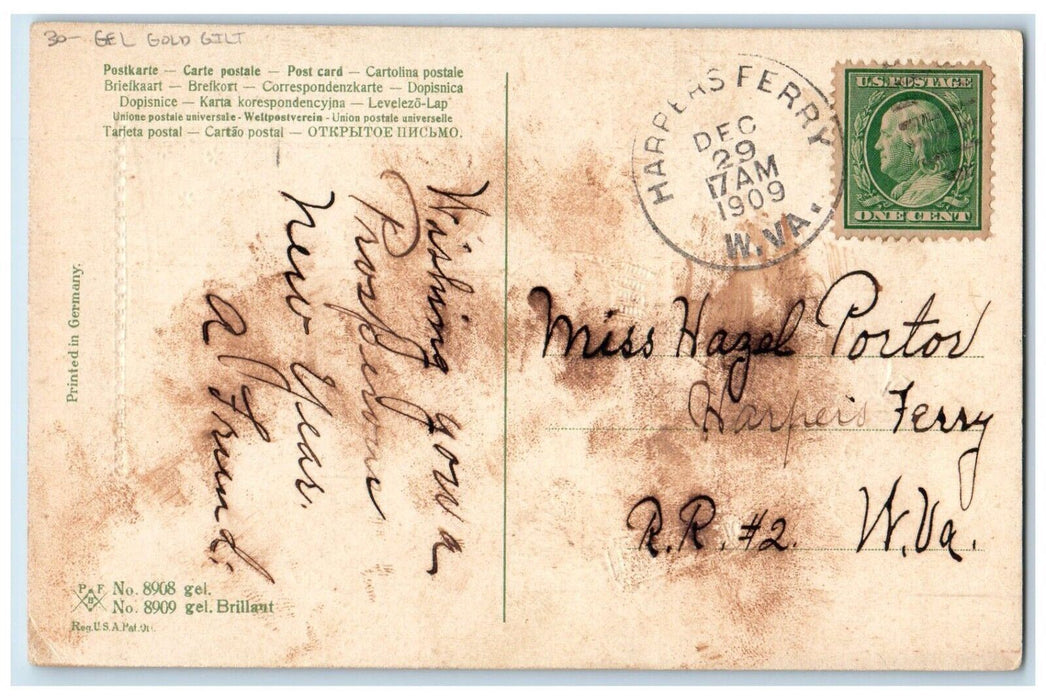 30- GEL GOLD GILT
Postkarte — Carte postale — Post card — Cartolina postale
Briefkaart — Brefkort — Correspondenzkarte — Dopisnica
Dopisnice — Karta korespondencyjna — Levelező-Lap
Unione postale universale - Weltpostverein - Union postale universelle
Tarjeta postal — Cartão postal — ОТКРЫТОЕ ПИСЬМО.
HARPERS FERRY
DEC
29
7 AM
1909
W.VA.
U.S. POSTAGE
ONE CENT
Wishing you a
Prosperous
New Year.
A Friend.
Miss Hazel Portor
Harpers Ferry
R.R. #2. W.Va.
Printed in Germany.
P F B
No. 8908 gel.
No. 8909 gel. Brillant
Reg. U.S.A. Pat. Off.